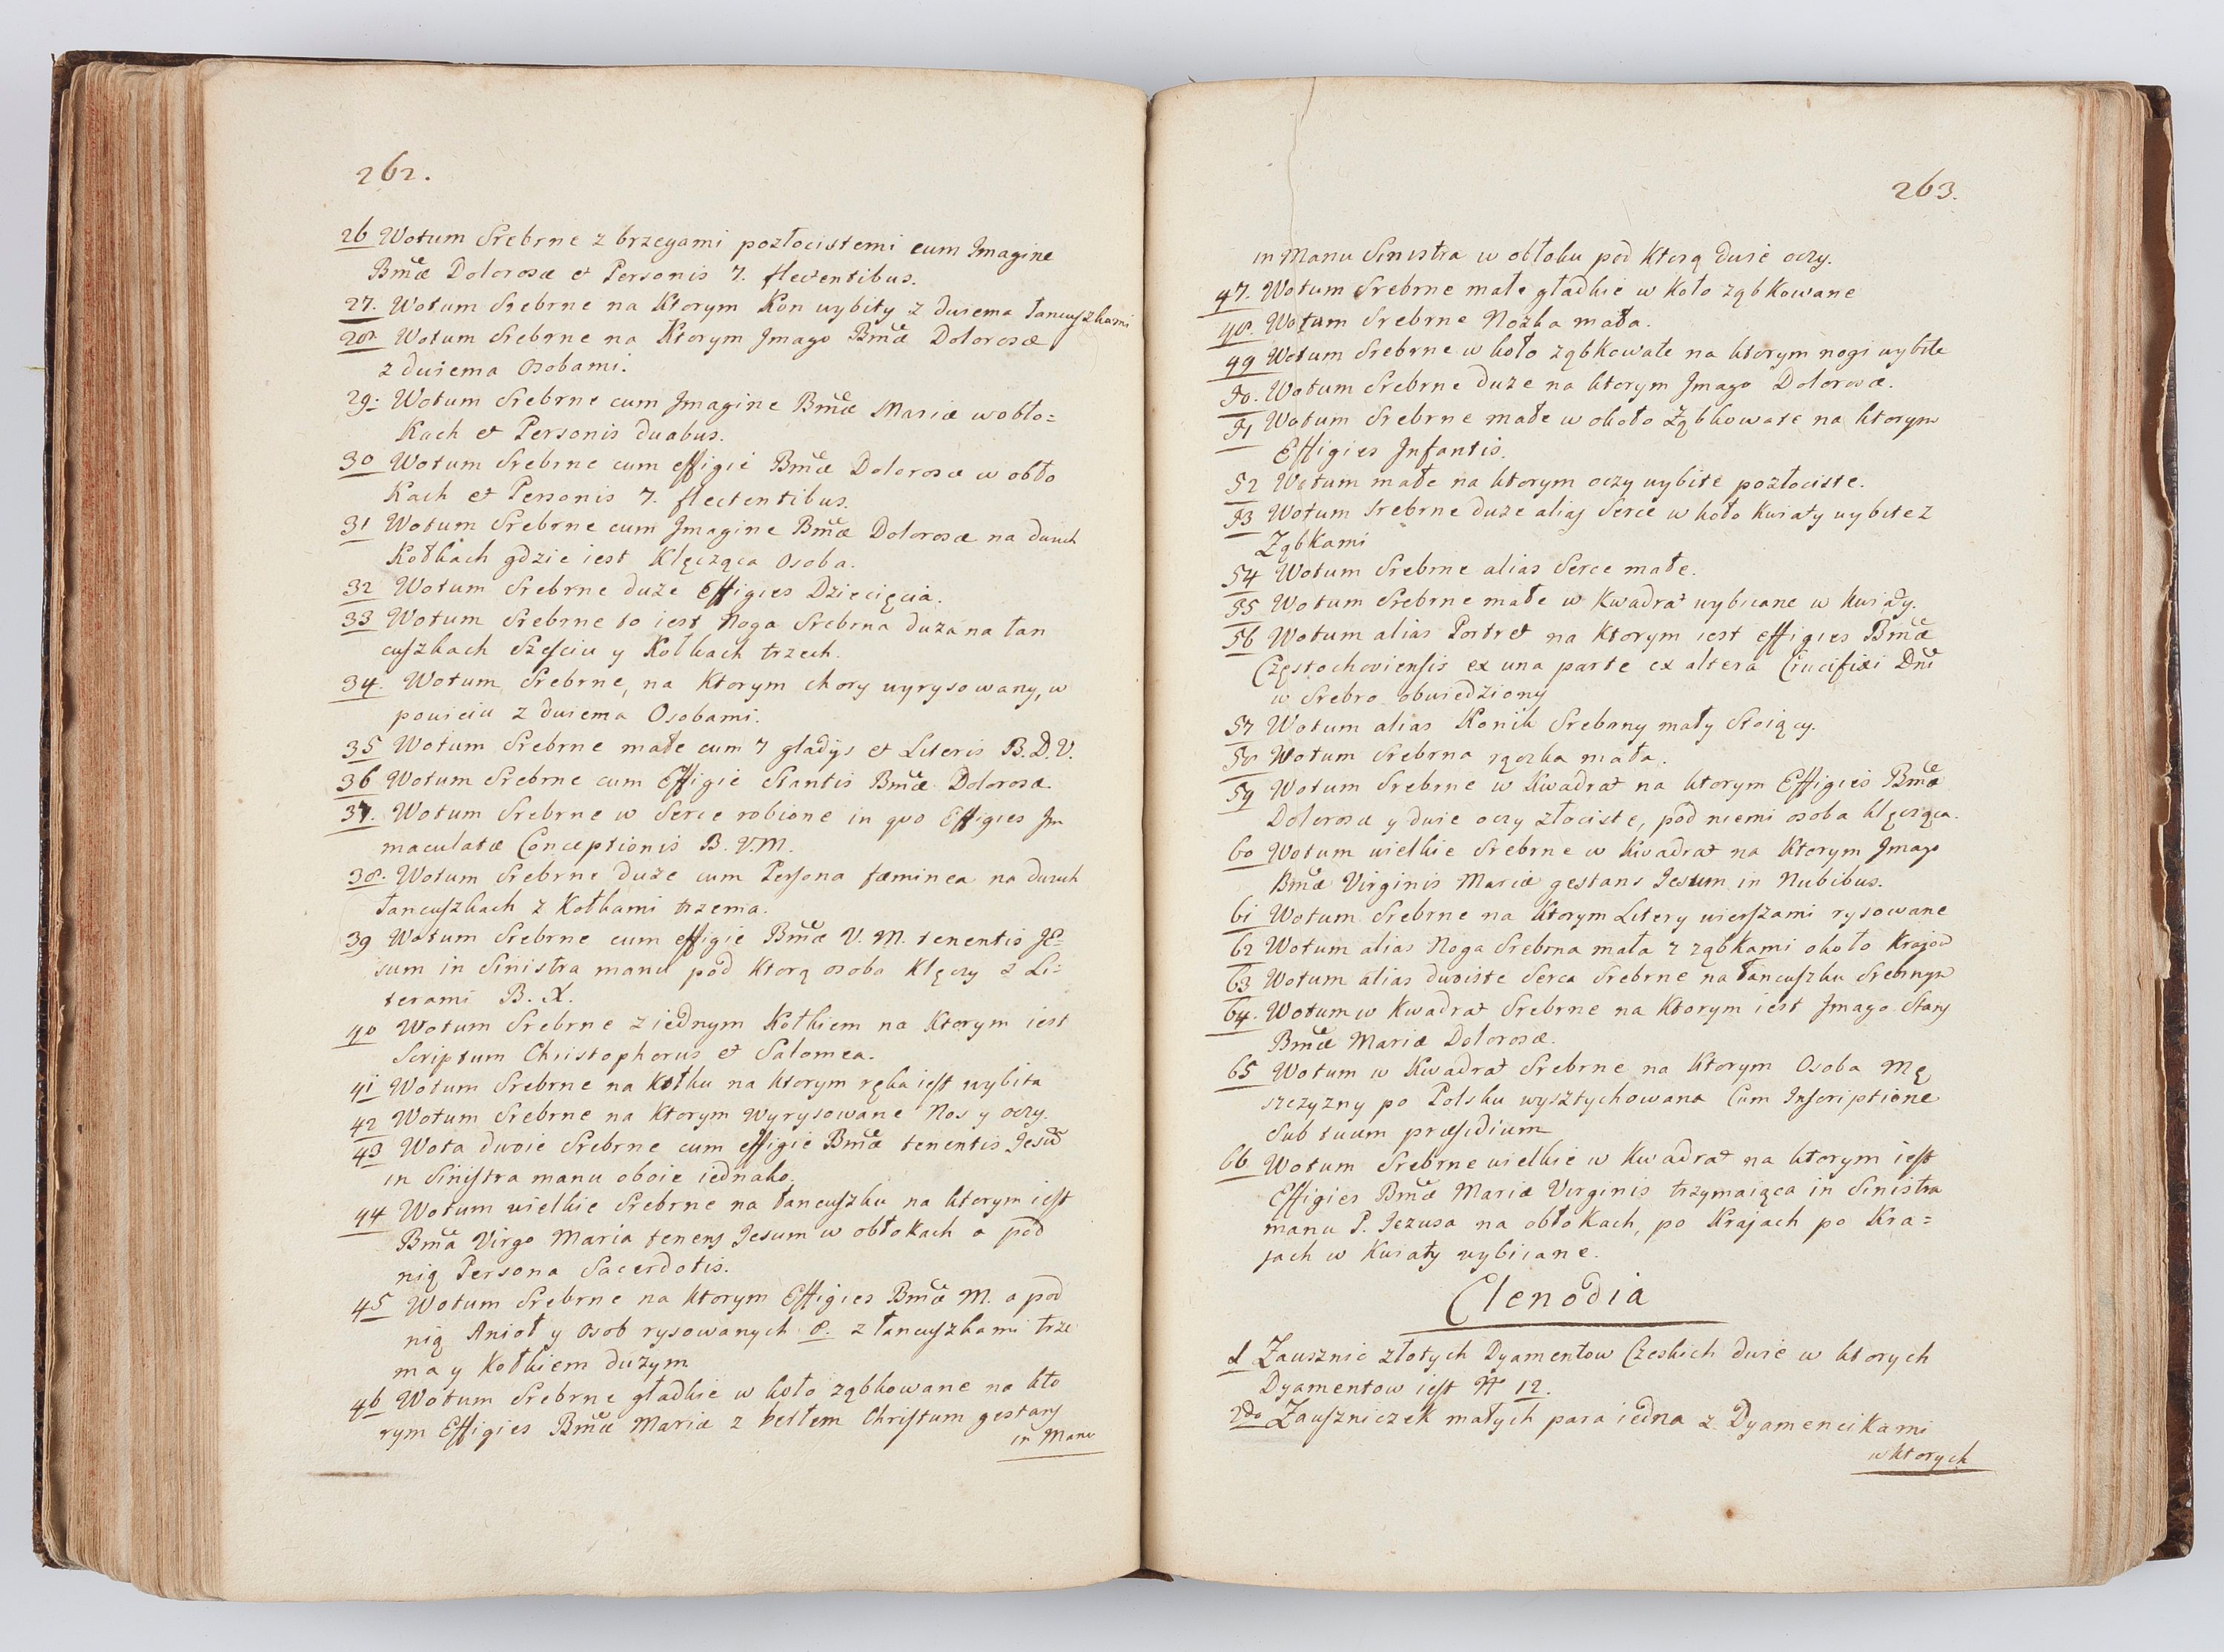 262.
26 Wotum Srebrne z brzegami pozłocistemi cum Imagine
Bmæ Dolorosæ et Personis 7. flectentibus.
27. Wotum Srebrne na Ktorym Kon wybity z dwiema łancuszkami
28 Wotum Srebrne na Ktorym Imago Bmæ Dolorosæ
z dwiema Osobami.
29. Wotum Srebrne cum Imagine Bmæ Mariæ w obło=
Kach et Personis duabus.
30 Wotum Srebrne cum effigie Bmæ Dolorosæ w obło
Kach et Personis 7. flectentibus.
31 Wotum Srebrne cum Imagine Bmæ Dolorosæ na dwuch
Kołkach gdzie iest Klęcząca Osoba.
32 Wotum Srebrne duże Effigies Dziecięcia.
33 Wotum Srebrne to iest Noga Srebrna duża na łan
cuszkach Sześciu y Kołkach trzech.
34. Wotum Srebrne, na Ktorym chory wyrysowany, w
powiciu z dwiema Osobami.
35 Wotum Srebrne małe cum 7 gladijs et Literis B. D. V.
36 Wotum Srebrne cum Effigie Stantis Bmæ Dolorosæ
37. Wotum Srebrne w Serce robione in quo Effigies Im
maculatæ Conceptionis B. V. M.
38. Wotum Srebrne duże cum Persona fæminea na dwuch
łancuszkach z Kołkami trzema.
39 Wotum Srebrne cum effigie Bmæ V. M. tenentis JE=
sum in Sinistra manu pod Ktorą osoba Klęczy z Li=
terami B. X.
40 Wotum Srebrne z iednym Kołkiem na Ktorym iest
Scriptum Christophorus et Salomea.
41 Wotum Srebrne na Kołku na ktorym ręka iest wybita
42 Wotum Srebrne na Ktorym wyrysowane Nos y oczy.
43 Wota dwoie Srebrne cum effigie Bmæ tenentis Jesu
in Sinistra manu oboie iednako.
44 Wotum wielkie Srebrne na łancuszku na ktorym iest
Bma Virgo Maria tenens Jesum w obłokach a pod
nią Persona Sacerdotis.
45 Wotum Srebrne na ktorym Effigies Bmæ M. a pod
nią Anioł y Osob rysowanych 8. z łancuszkami trze
ma y Kołkiem dużym
46 Wotum Srebrne gładkie w koło ząbkowane na kto
rym Effigies Bmæ Mariæ z berłem Christum gestans
in Manu
263.
in Manu Sinistra w obłoku pod Ktorą dwie oczy.
47. Wotum Srebrne małe gładkie w Koło ząbkowane
48. Wotum Srebrne Nożka mała.
49 Wotum Srebrne w koło ząbkowate na ktorym nogi wybite
50. Wotum Srebrne duże na ktorym Imago Dolorosæ.
51 Wotum Srebrne małe w około Ząbkowate na ktorym
Effigies Infantis.
52 Wotum małe na ktorym oczy wybite pozłociste.
53 Wotum Srebrne duże alias Serce w koło Kwiaty wybite z
Ząbkami
54 Wotum Srebrne alias Serce małe.
55 Wotum Srebrne małe w Kwadrat wybiiane w kwiaty.
56 Wotum alias Portret na Ktorym iest effigies Bmæ
Częstochoviensis ex una parte ex altera Crucifixi Dni
w Srebro obwiedziony
57 Wotum alias Konik Srebrny mały Stoiący.
58 Wotum Srebrna rączka mała.
59 Wotum Srebrne w Kwadrat na ktorym Effigies Bmæ
Dolorosæ y dwie oczy złociste, pod niemi osoba klęcząca.
60 Wotum wielkie Srebrne w Kwadrat na Ktorym Imago
Bmæ Virginis Mariæ gestans Jesum in Nubibus.
61 Wotum Srebrne na Ktorym Litery wierszami rysowane
62 Wotum alias Noga Srebrna mała z ząbkami około Krajow
63 Wotum alias dwoiste Serca Srebrne na łancuszku Srebrnym
64. Wotum w Kwadrat Srebrne na Ktorym iest Imago Stans
Bmæ Mariæ Dolorosæ.
65 Wotum w Kwadrat Srebrne na Ktorym Osoba Mę
szczyzny po Polsku wysztychowana Cum Inscriptione
Sub tuum præsidium
66 Wotum Srebrne wielkie w Kwadrat na ktorym iest
Effigies Bmæ Mariæ Virginis trzymaiąca in Sinistra
manu P. Jezusa na obłokach, po Krajach po Kra=
jach w Kwiaty wybiiane.
Clenodia
1 Zausznic złotych Dyamentow Czeskich dwie w ktorych
Dyamentow iest No 12.
2do Zauszniczek małych para iedna z Dyamencikami
w ktorych